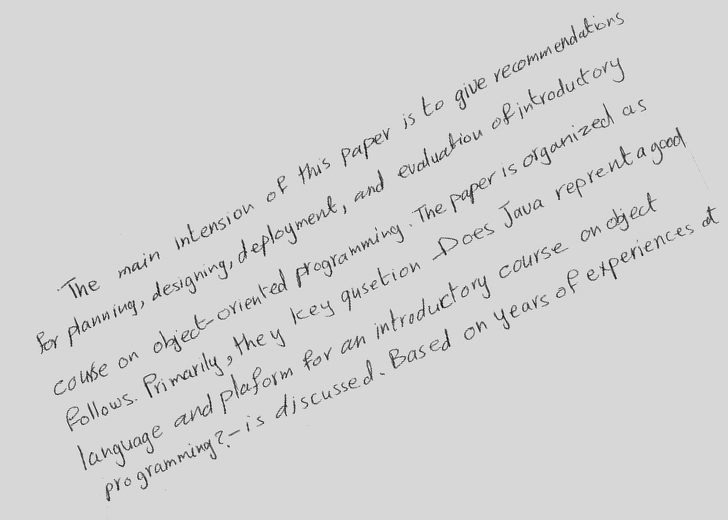 The main intension of this paper is to give recommendations
for planning, designing, deployment, and evaluation of introductory
course on object-oriented programming. The paper is organized as
follows. Primarily, they key qusetion Does Java reprent a good
language and plaform for an introductory course on object
programming?-is discussed. Based on years of experiences at